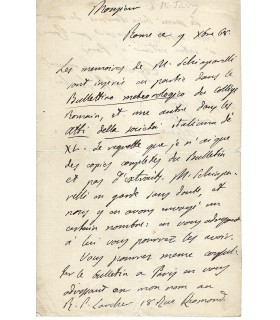 Monsieur
Rome ce 9 Xbre 68.
Les memoires de M. Schiaparelli
sont insérés en partie dans le
Bullettino meteorologico du College
Romain, et une autre dans les
Atti della società italiana de
XL. Je regrette que je n'aie que
des copies completes du Bulletin
et pas d'extraits. M. Schiapa-
relli en garde sans doute, et
nous y en avons envoyé un
certain nombre: en vous adressant
à lui vous pourrez les avoir.
Vous pouvez meme consul-
ter le bulletin a Paris en vous
adressant en mon nom au
R. P. 18 Rue